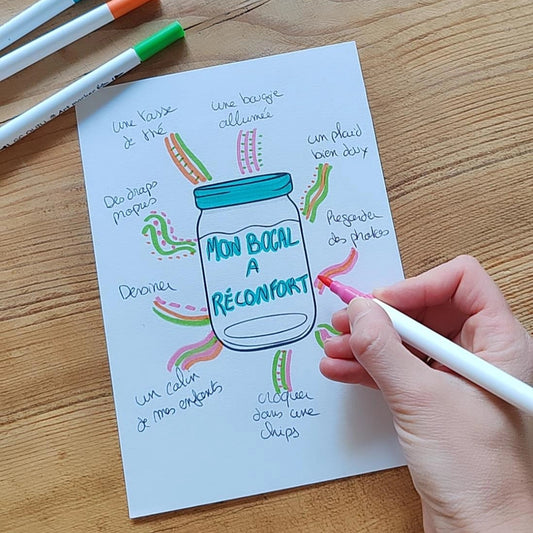 une tasse
de thé
une bougie
allumée
un plaid
bien doux
Des draps
propres
Regarder
des photos
MON BOCAL
A
RÉCONFORT
Dessiner
un calin
de mes enfants
croquer
dans une
chips